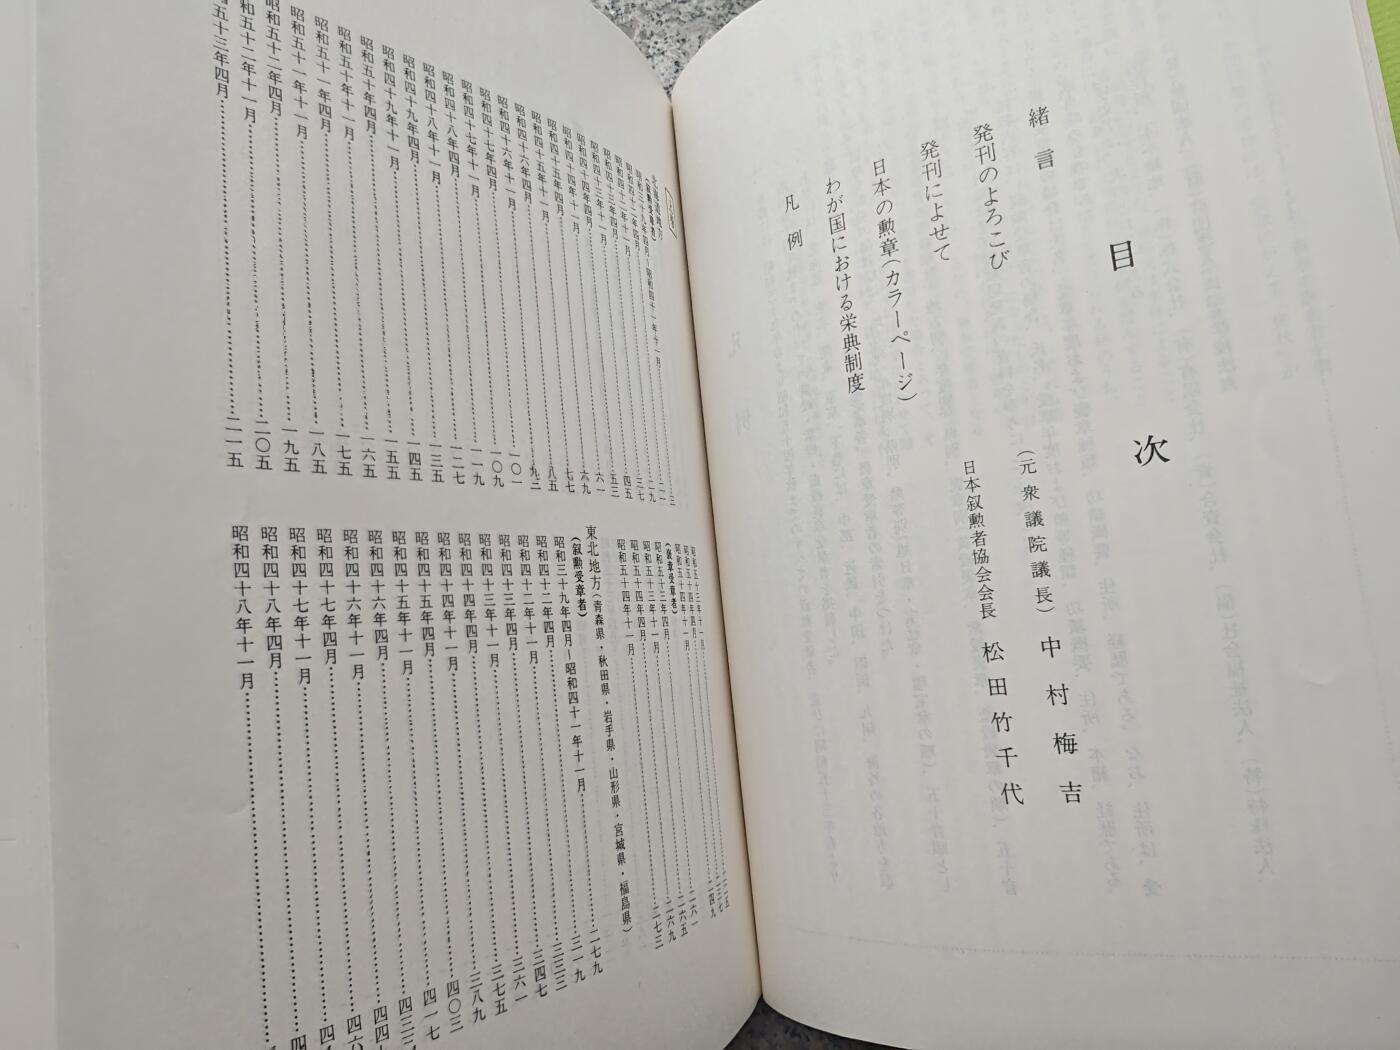 目次
緒言
発刊のよろこび
(元衆議院議長)中村梅吉
発刊によせて
日本叙勲者協会会長 松田竹千代
日本の勲章(カラーページ)
わが国における栄典制度
凡例
北海道地方
(叙勲受章者)
昭和三十九年四月―昭和四十一年十一月
昭和四十二年四月
昭和四十二年十一月……四五
昭和四十三年四月……五三
昭和四十三年十一月……六一
昭和四十四年四月……六九
昭和四十四年十一月……七七
昭和四十五年四月……八五
昭和四十五年十一月……九三
昭和四十六年四月……一〇一
昭和四十六年十一月……一〇九
昭和四十七年四月……一一九
昭和四十七年十一月……一二七
昭和四十八年四月……一三五
昭和四十八年十一月……一四五
昭和四十九年四月……一五五
昭和四十九年十一月……一六五
昭和五十年四月……一七五
昭和五十年十一月……一八五
昭和五十一年四月……一九五
昭和五十一年十一月……二〇五
昭和五十二年四月……二一五
昭和五十二年十一月
五十三年四月
昭和五十三年十一月
昭和五十四年四月
昭和五十四年十一月……二六一
(褒章受章者)
昭和五十三年四月……二六五
昭和五十三年十一月……二六九
昭和五十四年四月……二七三
昭和五十四年十一月
東北地方(青森県・秋田県・岩手県・山形県・宮城県・福島県)
(叙勲受章者)
昭和三十九年四月―昭和四十一年十一月……二七九
昭和四十二年四月……三一九
昭和四十二年十一月……三三三
昭和四十三年四月……三四七
昭和四十三年十一月……三六一
昭和四十四年四月……三七五
昭和四十四年十一月……三八九
昭和四十五年四月……四〇三
昭和四十五年十一月……四一七
昭和四十六年四月
昭和四十六年十一月
昭和四十七年四月
昭和四十七年十一月
昭和四十八年四月
昭和四十八年十一月